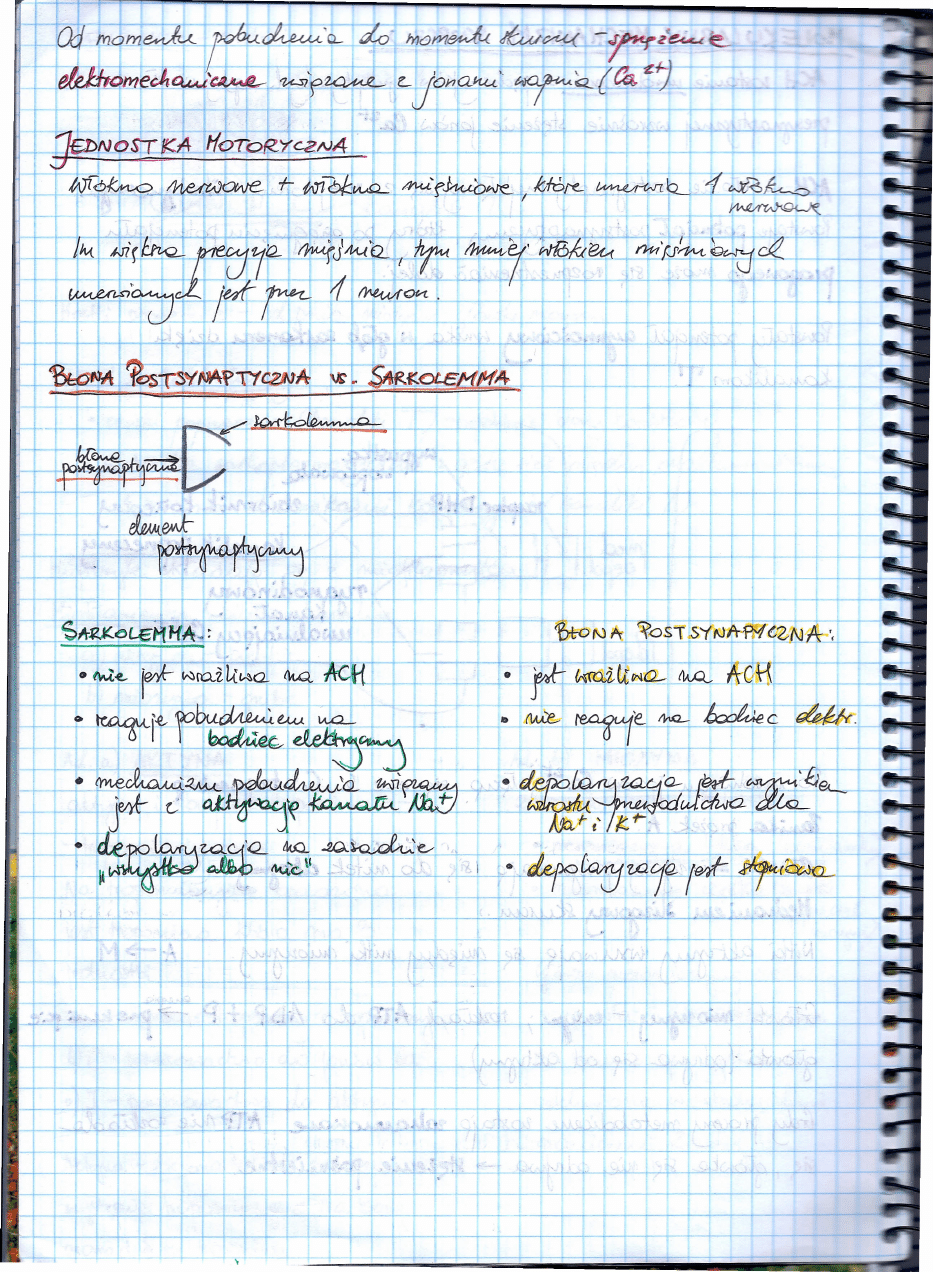 Od momentu pobudzenia do momentu skurczu - sprzężenie
elektromechaniczne związane z jonami wapnia (Ca²⁺)
JEDNOSTKA MOTORYCZNA
włókno nerwowe + włókna mięśniowe, które unerwia 1 włókno
nerwowe
Im większa precyzja mięśnia, tym mniej włókien mięśniowych
unerwianych jest przez 1 neuron.
BŁONA POSTSYNAPTYCZNA vs. SARKOLEMMA
sarkolemma
błona
postsynaptyczna
element
postsynaptyczny
SARKOLEMMA:
• nie jest wrażliwa na ACH
• reaguje pobudzeniem na
bodziec elektryczny
• mechanizm pobudzenia związany
jest z aktywacją kanału Na⁺
• depolaryzacja na zasadzie
„wszystko albo nic"
BŁONA POSTSYNAPYCZNA:
• jest wrażliwa na ACH
• nie reaguje na bodziec elektr.
• depolaryzacja jest wynikiem
wzrostu przewodnictwa dla
Na⁺ i K⁺
• depolaryzacja jest stopniowa